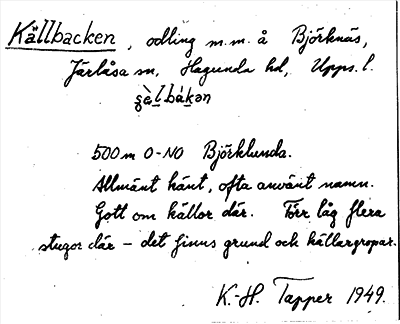 Källbacken, odling m.m. å Björknäs,
Järlåsa sn, Hagunda hd, Upps. l.
500 m O-NO Björklunda.
Allmänt känt, ofta använt namn.
Gott om källor där. Förr låg flera
stugor där – det finns grund och källargropar.
K.-H. Tapper 1949.